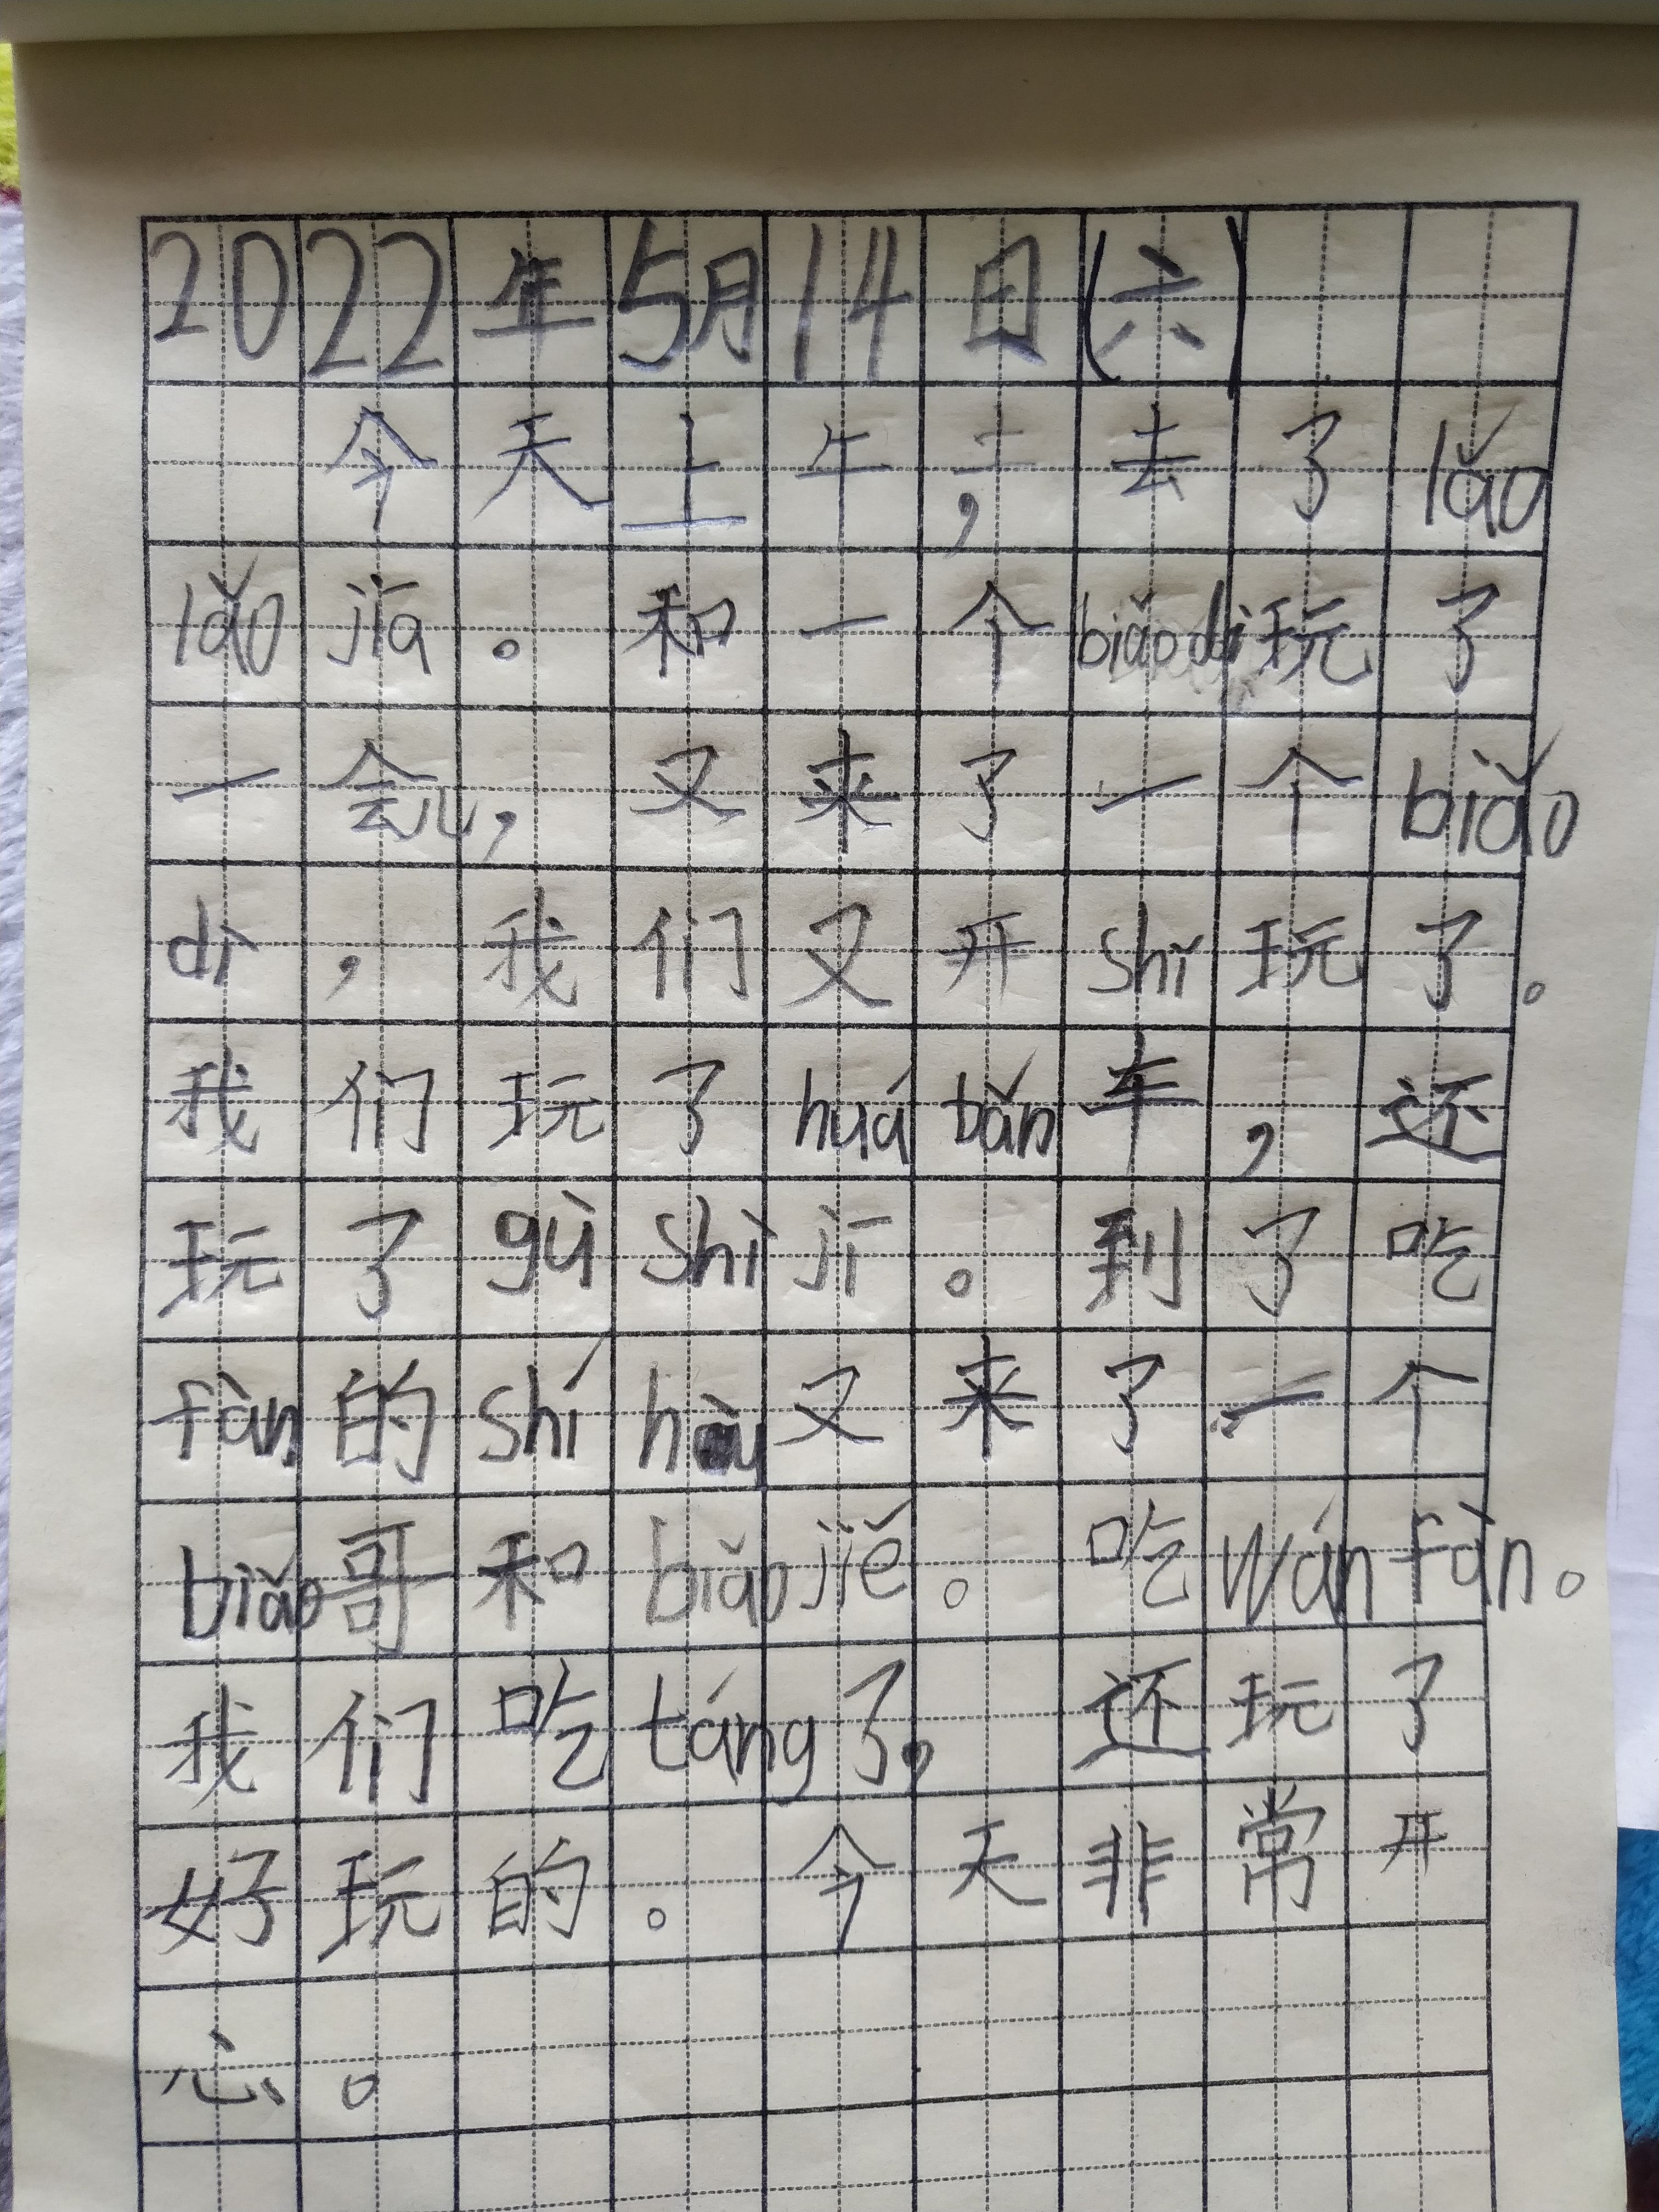 2022年5月14日(六)
今天上午,去了lǎo
lǎo jiā。和一个biǎo dì玩了
一会儿,又来了一个biǎo
dì,我们又开shǐ玩了。
我们玩了huá bǎn车,还
玩了gù shì jī。到了吃
fàn的shí hòu又来了一个
biǎo哥和biǎo jiě。吃wán fàn。
我们吃táng了,还玩了
好玩的。今天非常开
心。